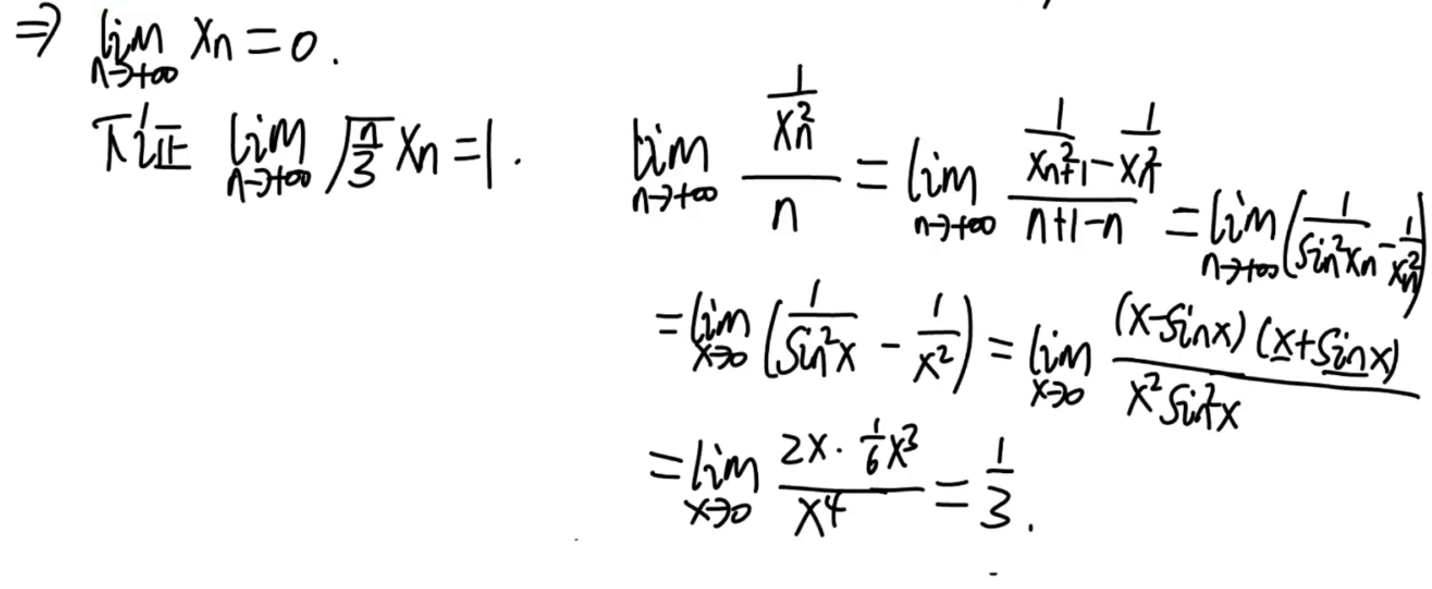 ⇒ lim_{n→+∞} xn = 0.
下证 lim_{n→+∞} √(n/3) xn = 1.
lim_{n→+∞} (1/xn²)/n = lim_{n→+∞} (1/x²n+1 − 1/xn²)/(n+1−n) = lim_{n→+∞} (1/sin²xn − 1/xn²)
= lim_{x→0} (1/sin²x − 1/x²) = lim_{x→0} (x−sinx)(x+sinx)/(x²sin²x)
= lim_{x→0} (2x·(1/6)x³)/x⁴ = 1/3.